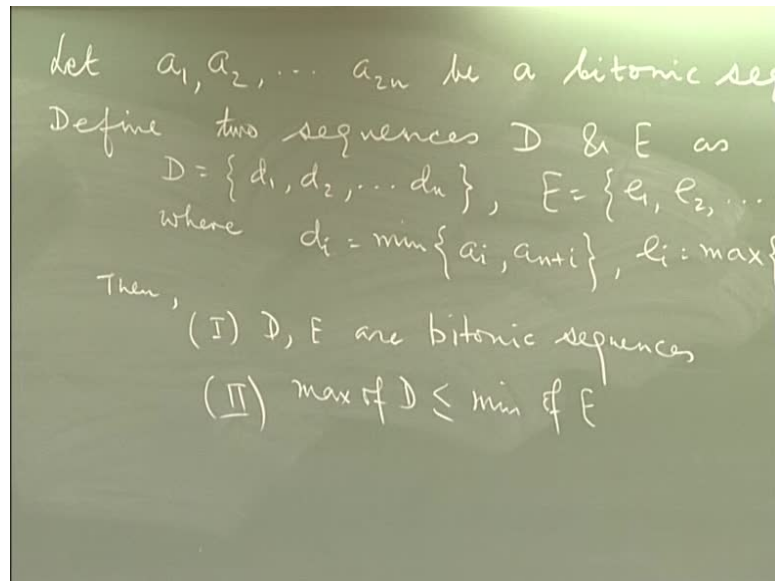 Let a₁, a₂, ... a₂ₙ be a bitonic seq
Define two sequences D & E as
D = { d₁, d₂, ... dₙ }, E = { e₁, e₂, ...
where dᵢ = min { aᵢ, aₙ₊ᵢ }, eᵢ = max {
Then,
(I) D, E are bitonic sequences
(II) max of D ≤ min of E